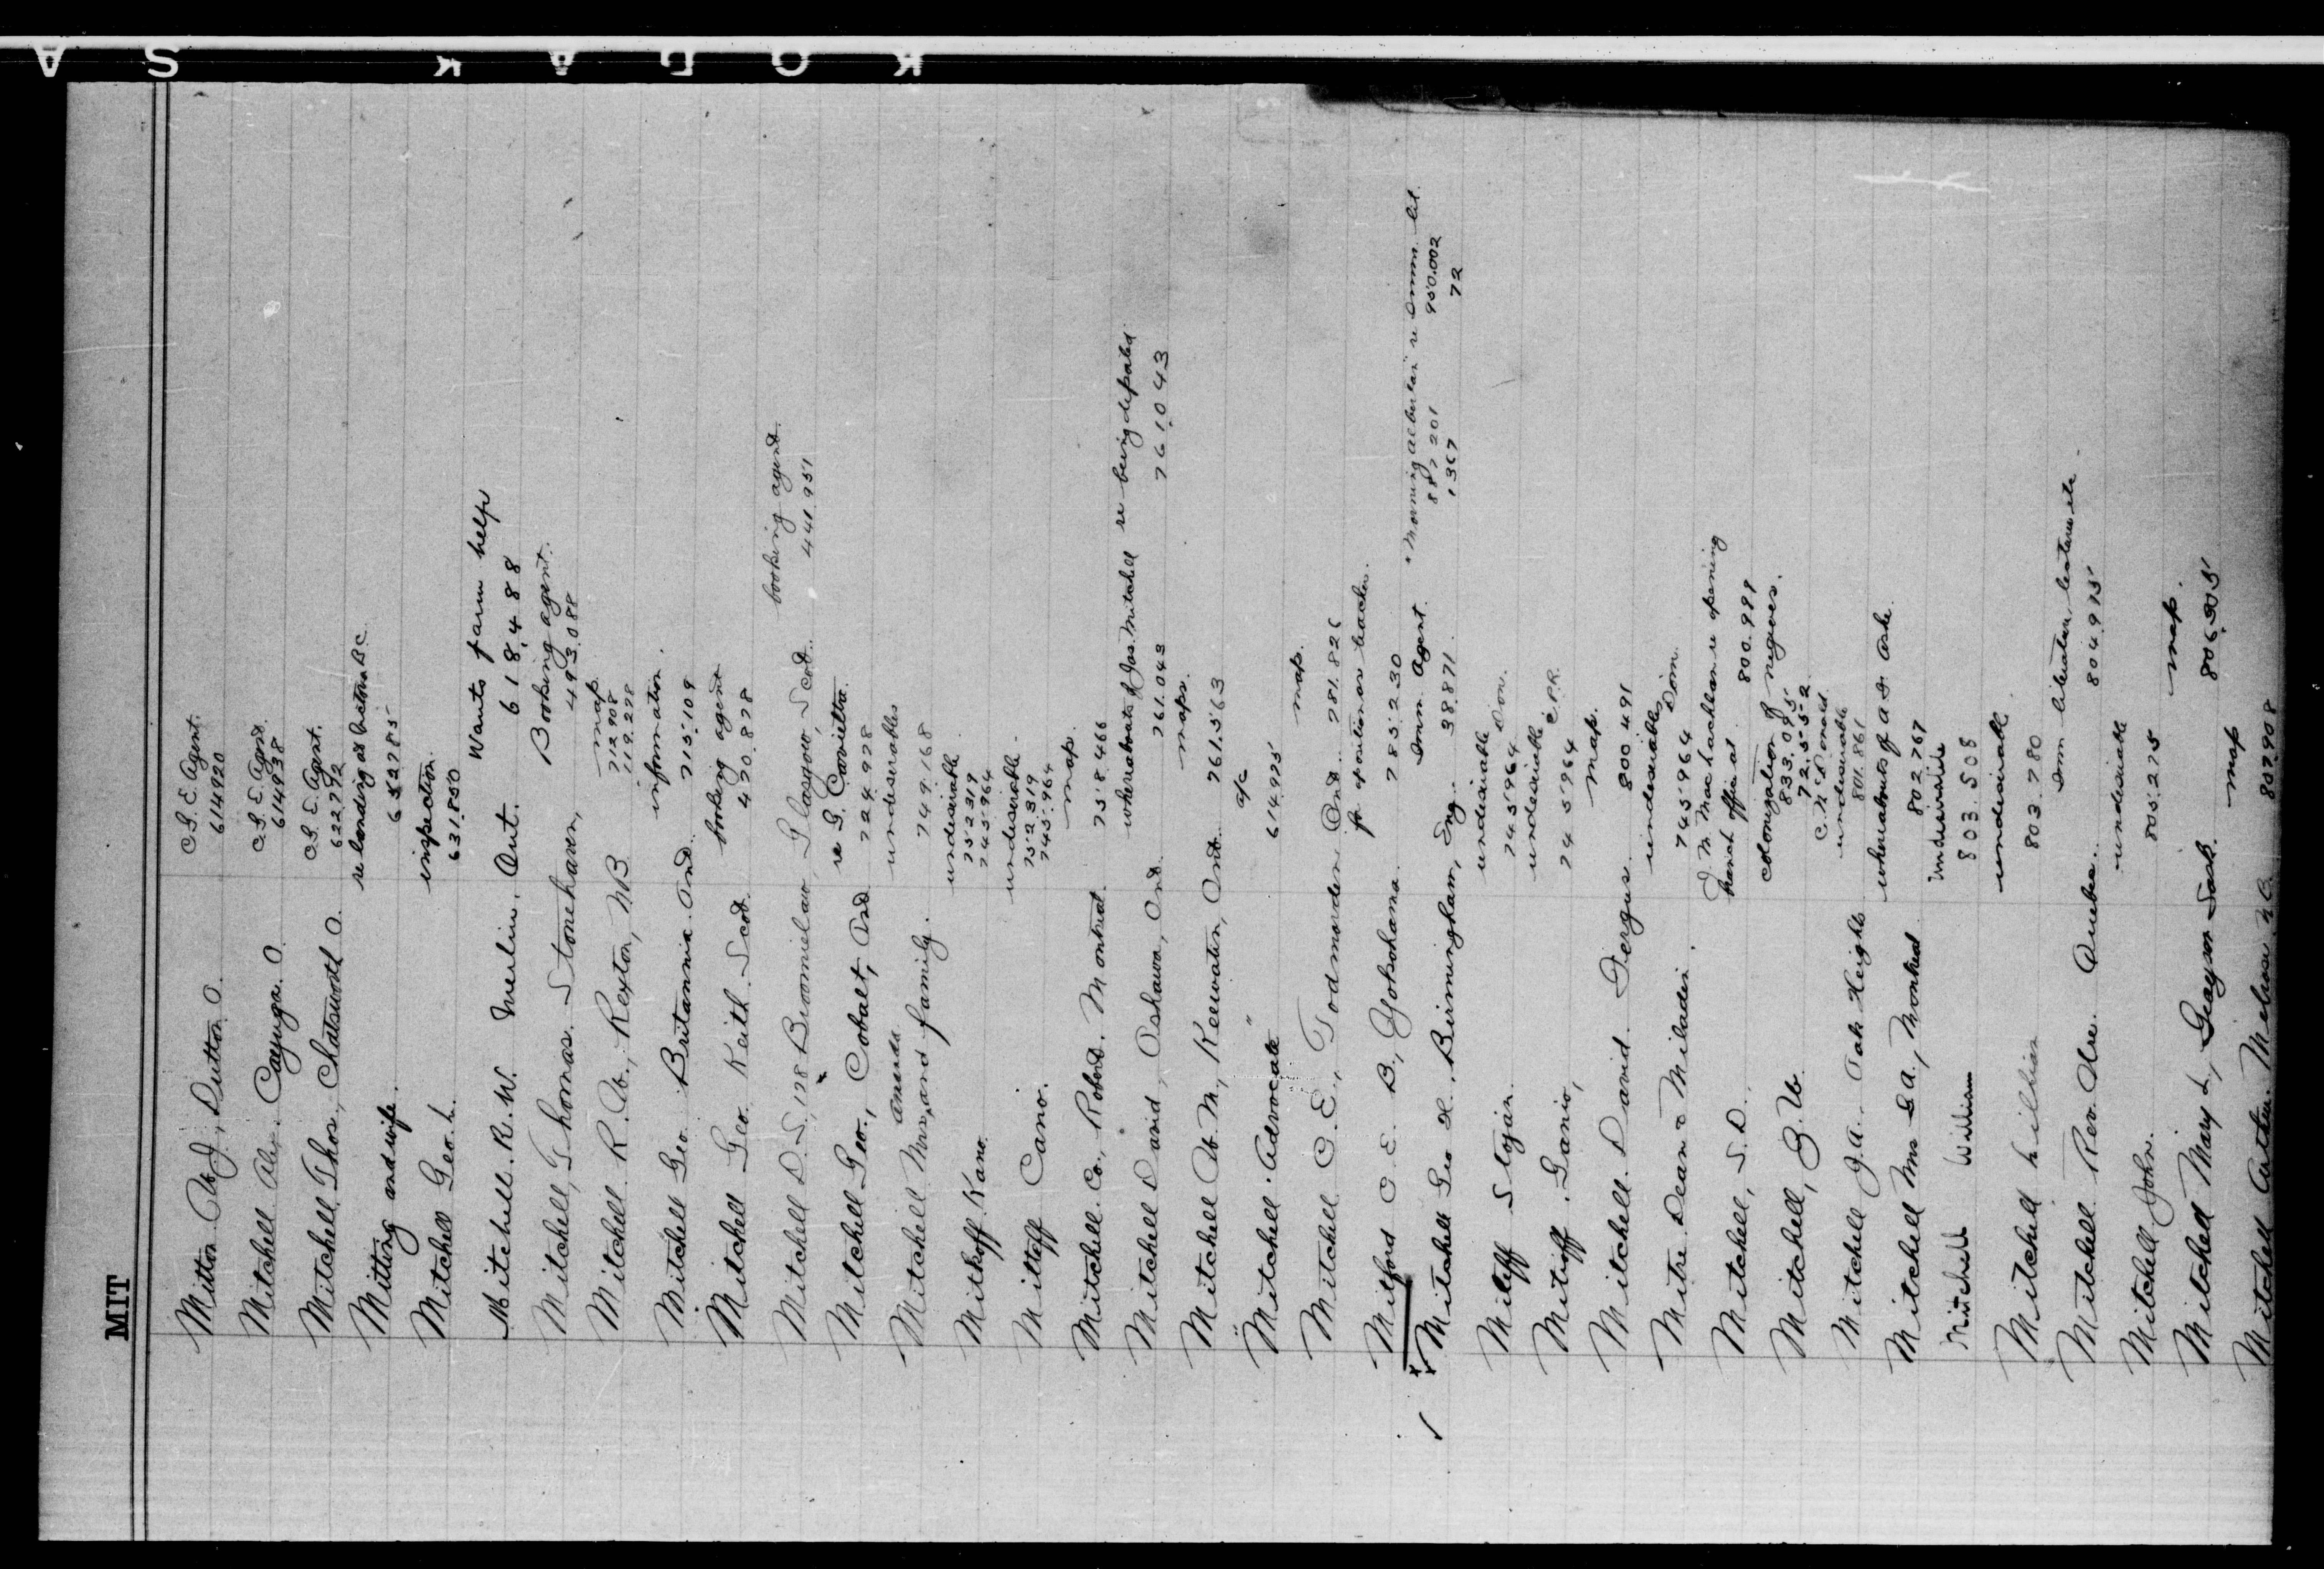 KODAK SA
MIT
Mitton W J, Dutton O. C.G.E. Agent.
614920
Mitchell Alex. Cayuga. O. C.G.E. Agent.
614938
Mitchell Thos., Chatsworth O. C.G.E. Agent.
622772
Mitting and wife. re landing at Victoria BC
652785
Mitchell Geo. L. inspection
631.850
Mitchell. R. W. Merlin, Ont. Wants farm help
618,488
Mitchell, Thomas. Stonehaven, Booking agent.
493.088
Mitchell R. W., Rexton, NB map.
712908
719.278
Mitchell Geo. Britannia. Ont. information.
715.109
Mitchell Geo. Keith. Scot. booking agent
470.878
Mitchell D.S., 178 Broomielaw, Glasgow, Scot. booking agent.
441.951
Mitchell Geo., Cobalt, Ont re G. Covietta.
724.978
Mitchell Mrs Amanda and family. undesirables
749.168
Mitkoff Kano. undesirable
752319
745.964
Mittoff Cano. undesirable.
752.319
745.964
Mitchell Co., Robert. Montreal map.
758.466
Mitchell David, Oshawa, Ont whereabouts of Jas. Mitchell re being deported
761.043 761.043
Mitchell W. M., Keewatin, Ont. maps.
761.563
Mitchell "Advocate" a/c
614.925
Mitchell C. E., Todmorden Ont. map.
781.826
Mitford C. E. B, Yokohama. for position as teacher.
785.230
Mitchell Geo H., Birmingham, Eng. Imm. Agent. "Morning Albertan" re Imm. lit
38.871. 887201 950.002
1367 72
Miteff Stojan. undesirable Dom.
745964
Mitioff, Ganio, undesirable C.P.R.
745964
Mitchell. David. Fergus. map.
800.491
Mitre Dean & Miladin. undesirables Dom.
745964
Mitchell, S. D. J. N. MacLachlan re opening
branch office at 800.999
Mitchell, J. W. colonization of negroes.
833.095
72.552
Mitchell J. A. Oak Heights C. McDonald
undesirable
801.861
Mitchell Mrs G. A., Montreal whereabouts of
802767
Mitchell William undesirable
803.508
Mitchell Lillian undesirable
803.780
Mitchell Rev. Quebec. Imm literature, lectures etc.
804.975
Mitchell John. undesirable
805.275
Mitchell Mary L, Sask. map.
806.905
Mitchell Arthur. Melrose N.B. map
807908